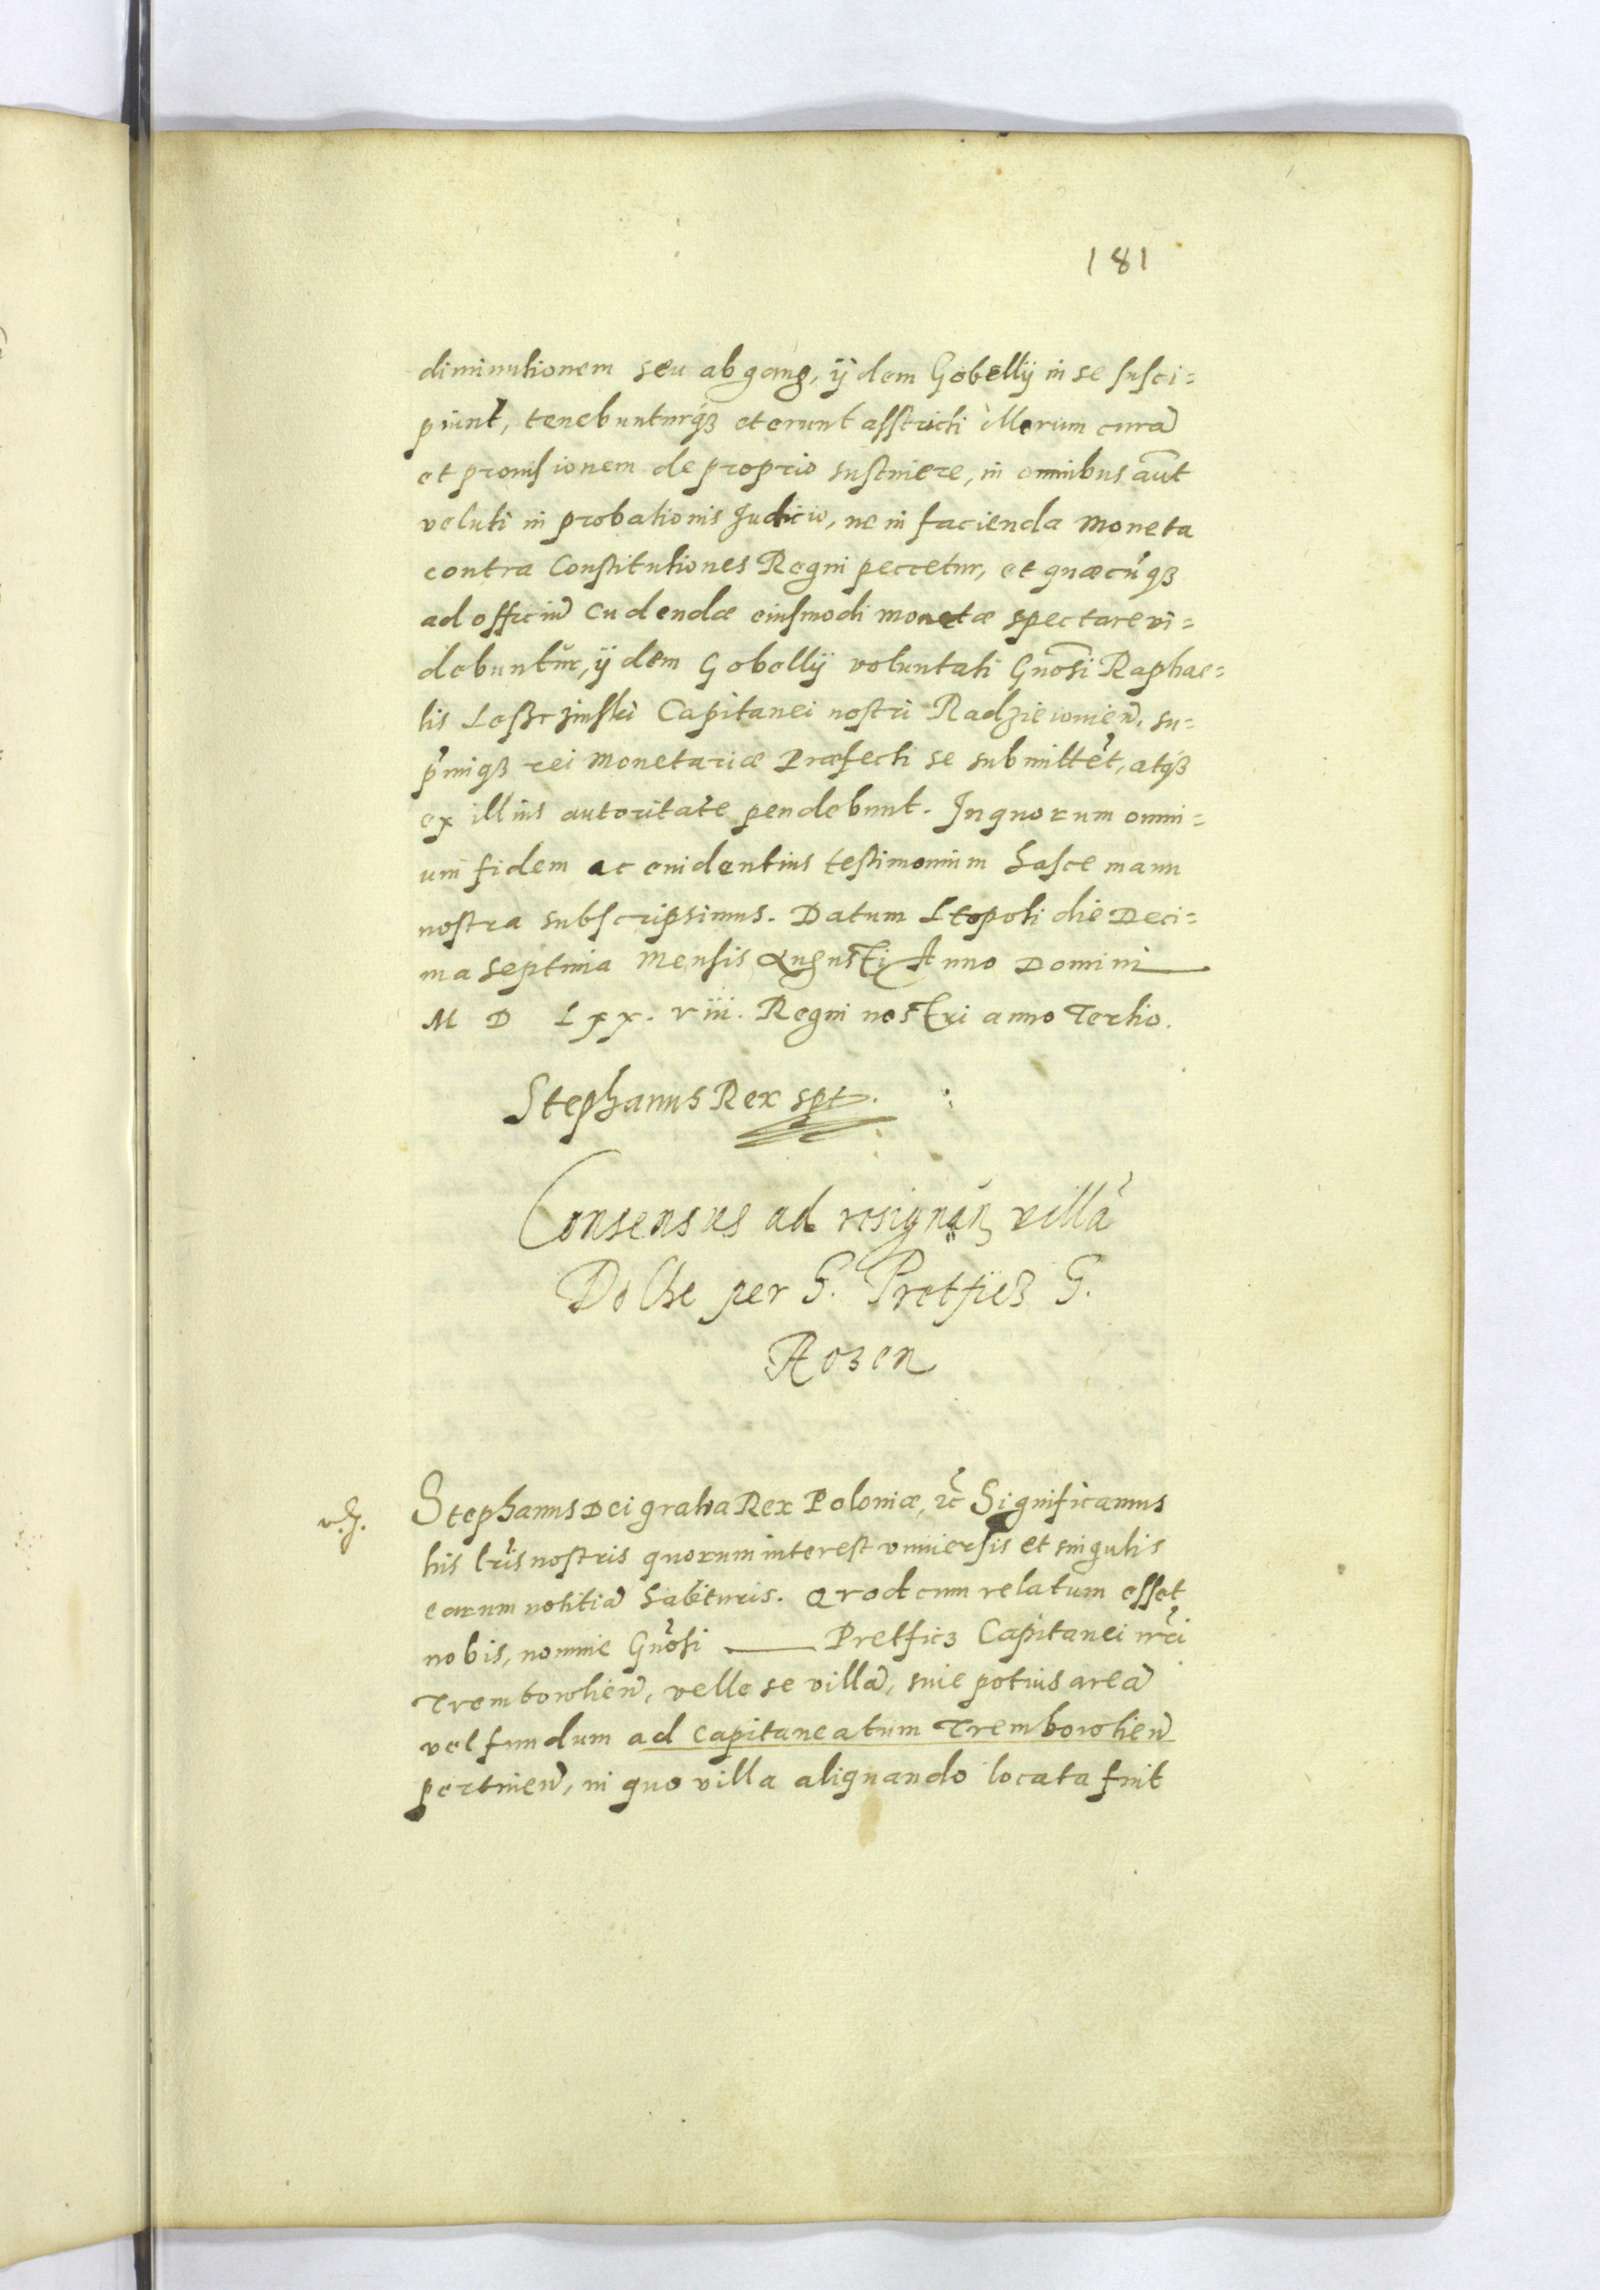 181
diminutionem seu abgang, ijdem Gobellij in se susci=
piunt, tenebunturq₃ et erunt asstricti illorum curā
et prouisionem de proprio sustinere, in omnibus aūt
veluti in probationis Iudicio, ne in facienda moneta
contra Constitutiones Regni peccetur, et quæcūq₃
ad officiū cudendæ eiusmodi monetæ spectare vi=
debuntur, ijdem Gobellij voluntati Gnōsi Raphae=
lis Leszczinski Capitanei nostri Radzieiouien̄. su=
p̄miq₃ rei monetariæ Præfecti se submittēt, atq₃
ex illius autoritate pendebunt. In quorum omni=
um fidem ac euidentius testimonium hasce manu
nostra subscripsimus. Datum Leopoli die Deci=
ma septima Mensis Augusti Anno Domini
M D Lxx. viii. Regni nostri anno Tertio.
Stephanus Rex spt.
Consensus ad resignan̄ villā
Dolhe per G. Pretficz G.
Rozen
Stephanus Dei gratia Rex Poloniæ, &c̄ Significamus
his lr̄is nostris quorum interest vniuersis et singulis
earum notitiā habituris. Quod cum relatum esset
nobis, nomine Gn̄osi ——— Pretficz Capitanei nr̄i
Trembowlien̄, velle se villā, siue potius areā
vel fundum ad Capitaneatum Trembowlien̄
pertinen̄, in quo villa aliquando locata fuit